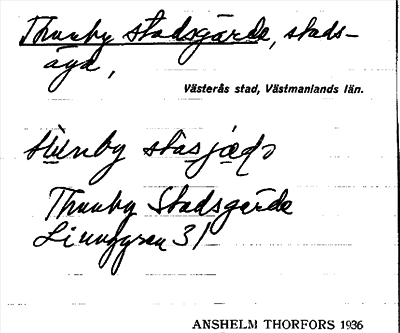 Thunby stadsgärde, stads-
äga,
Västerås stad, Västmanlands län.
stasjæḍ
Thunby Stadsgärde
31
ANSHELM THORFORS 1936